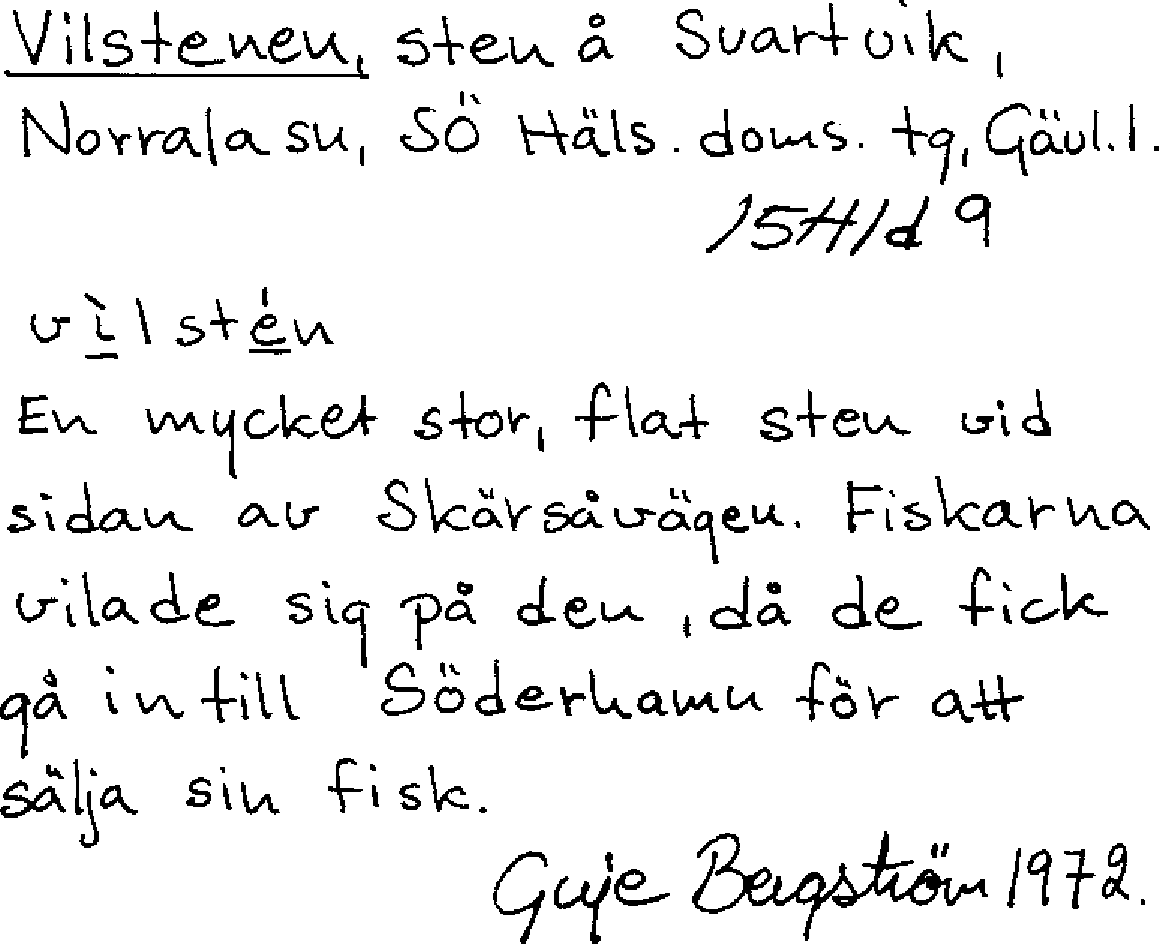 Vilstenen, sten å Svartvik,
Norrala sn, SÖ Häls. doms. tg, Gävl.l.
15H1d 9
vìlstén
En mycket stor, flat sten vid
sidan av Skärsåvägen. Fiskarna
vilade sig på den, då de fick
gå in till Söderhamn för att
sälja sin fisk.
Guje Bergström 1972.